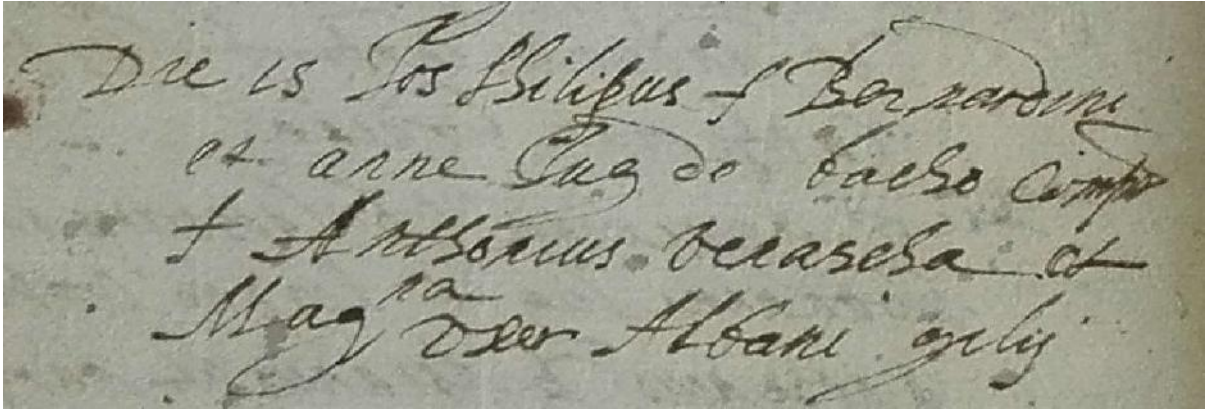 Die 15 Jos Philipus f Bernardini
et anne Jug de bacho Comp
f Anthonius verascha et
Mag na uxor Albani gilij